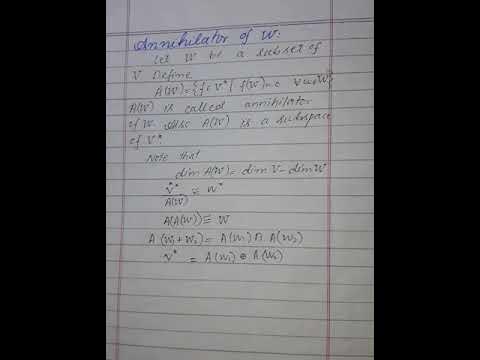 Annihilator of W:
Let W be a subset of
V Define
A(W)={f∈V*| f(W)=0 ∀ w∈W}
A(W) is called annihilator
of W. Also A(W) is a subspace
of V*.
Note that
dim A(W) = dim V - dim W
V*/A(W) ≅ W*
A(A(W)) ≅ W
A(W₁+W₂) = A(W₁) ∩ A(W₂)
V* = A(W₁) ⊕ A(W₂)